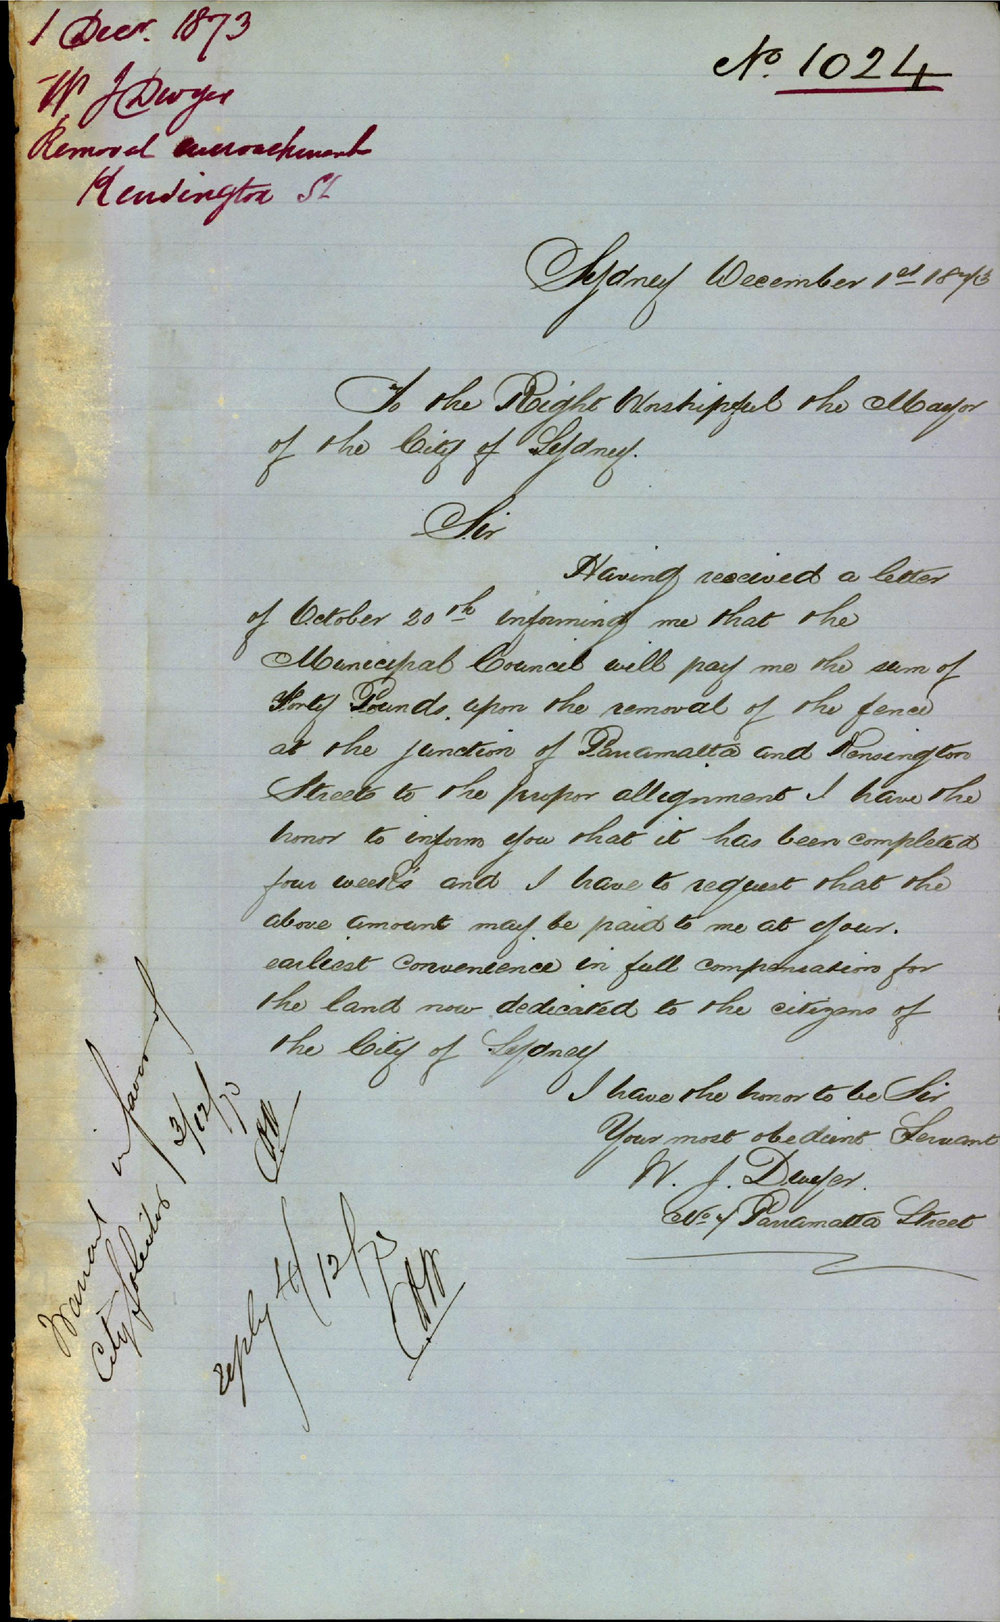 1 Decr. 1873
W J Dwyer
Removal encroachment
Kensington St
No. 1024
Sydney December 1st 1873
To the Right Worshipful the Mayor
of the City of Sydney.
Sir
Having received a letter
of October 20th informing me that the
Municipal Council will pay me the sum of
Forty Pounds. upon the removal of the fence
at the junction of Parramatta and Kensington
Streets to the propor allignment I have the
honor to inform you that it has been completed
four weeks and I have to request that the
above amount may be paid to me at your.
earliest convenience in full compensation for
the land now dedicated to the citizens of
the City of Sydney
I have the honor to be Sir
Your most obedient Servant
W. J. Dwyer.
Parramatta Street
Warrant in favor of
City Solicitor 3/12/73
reply 4/12/73